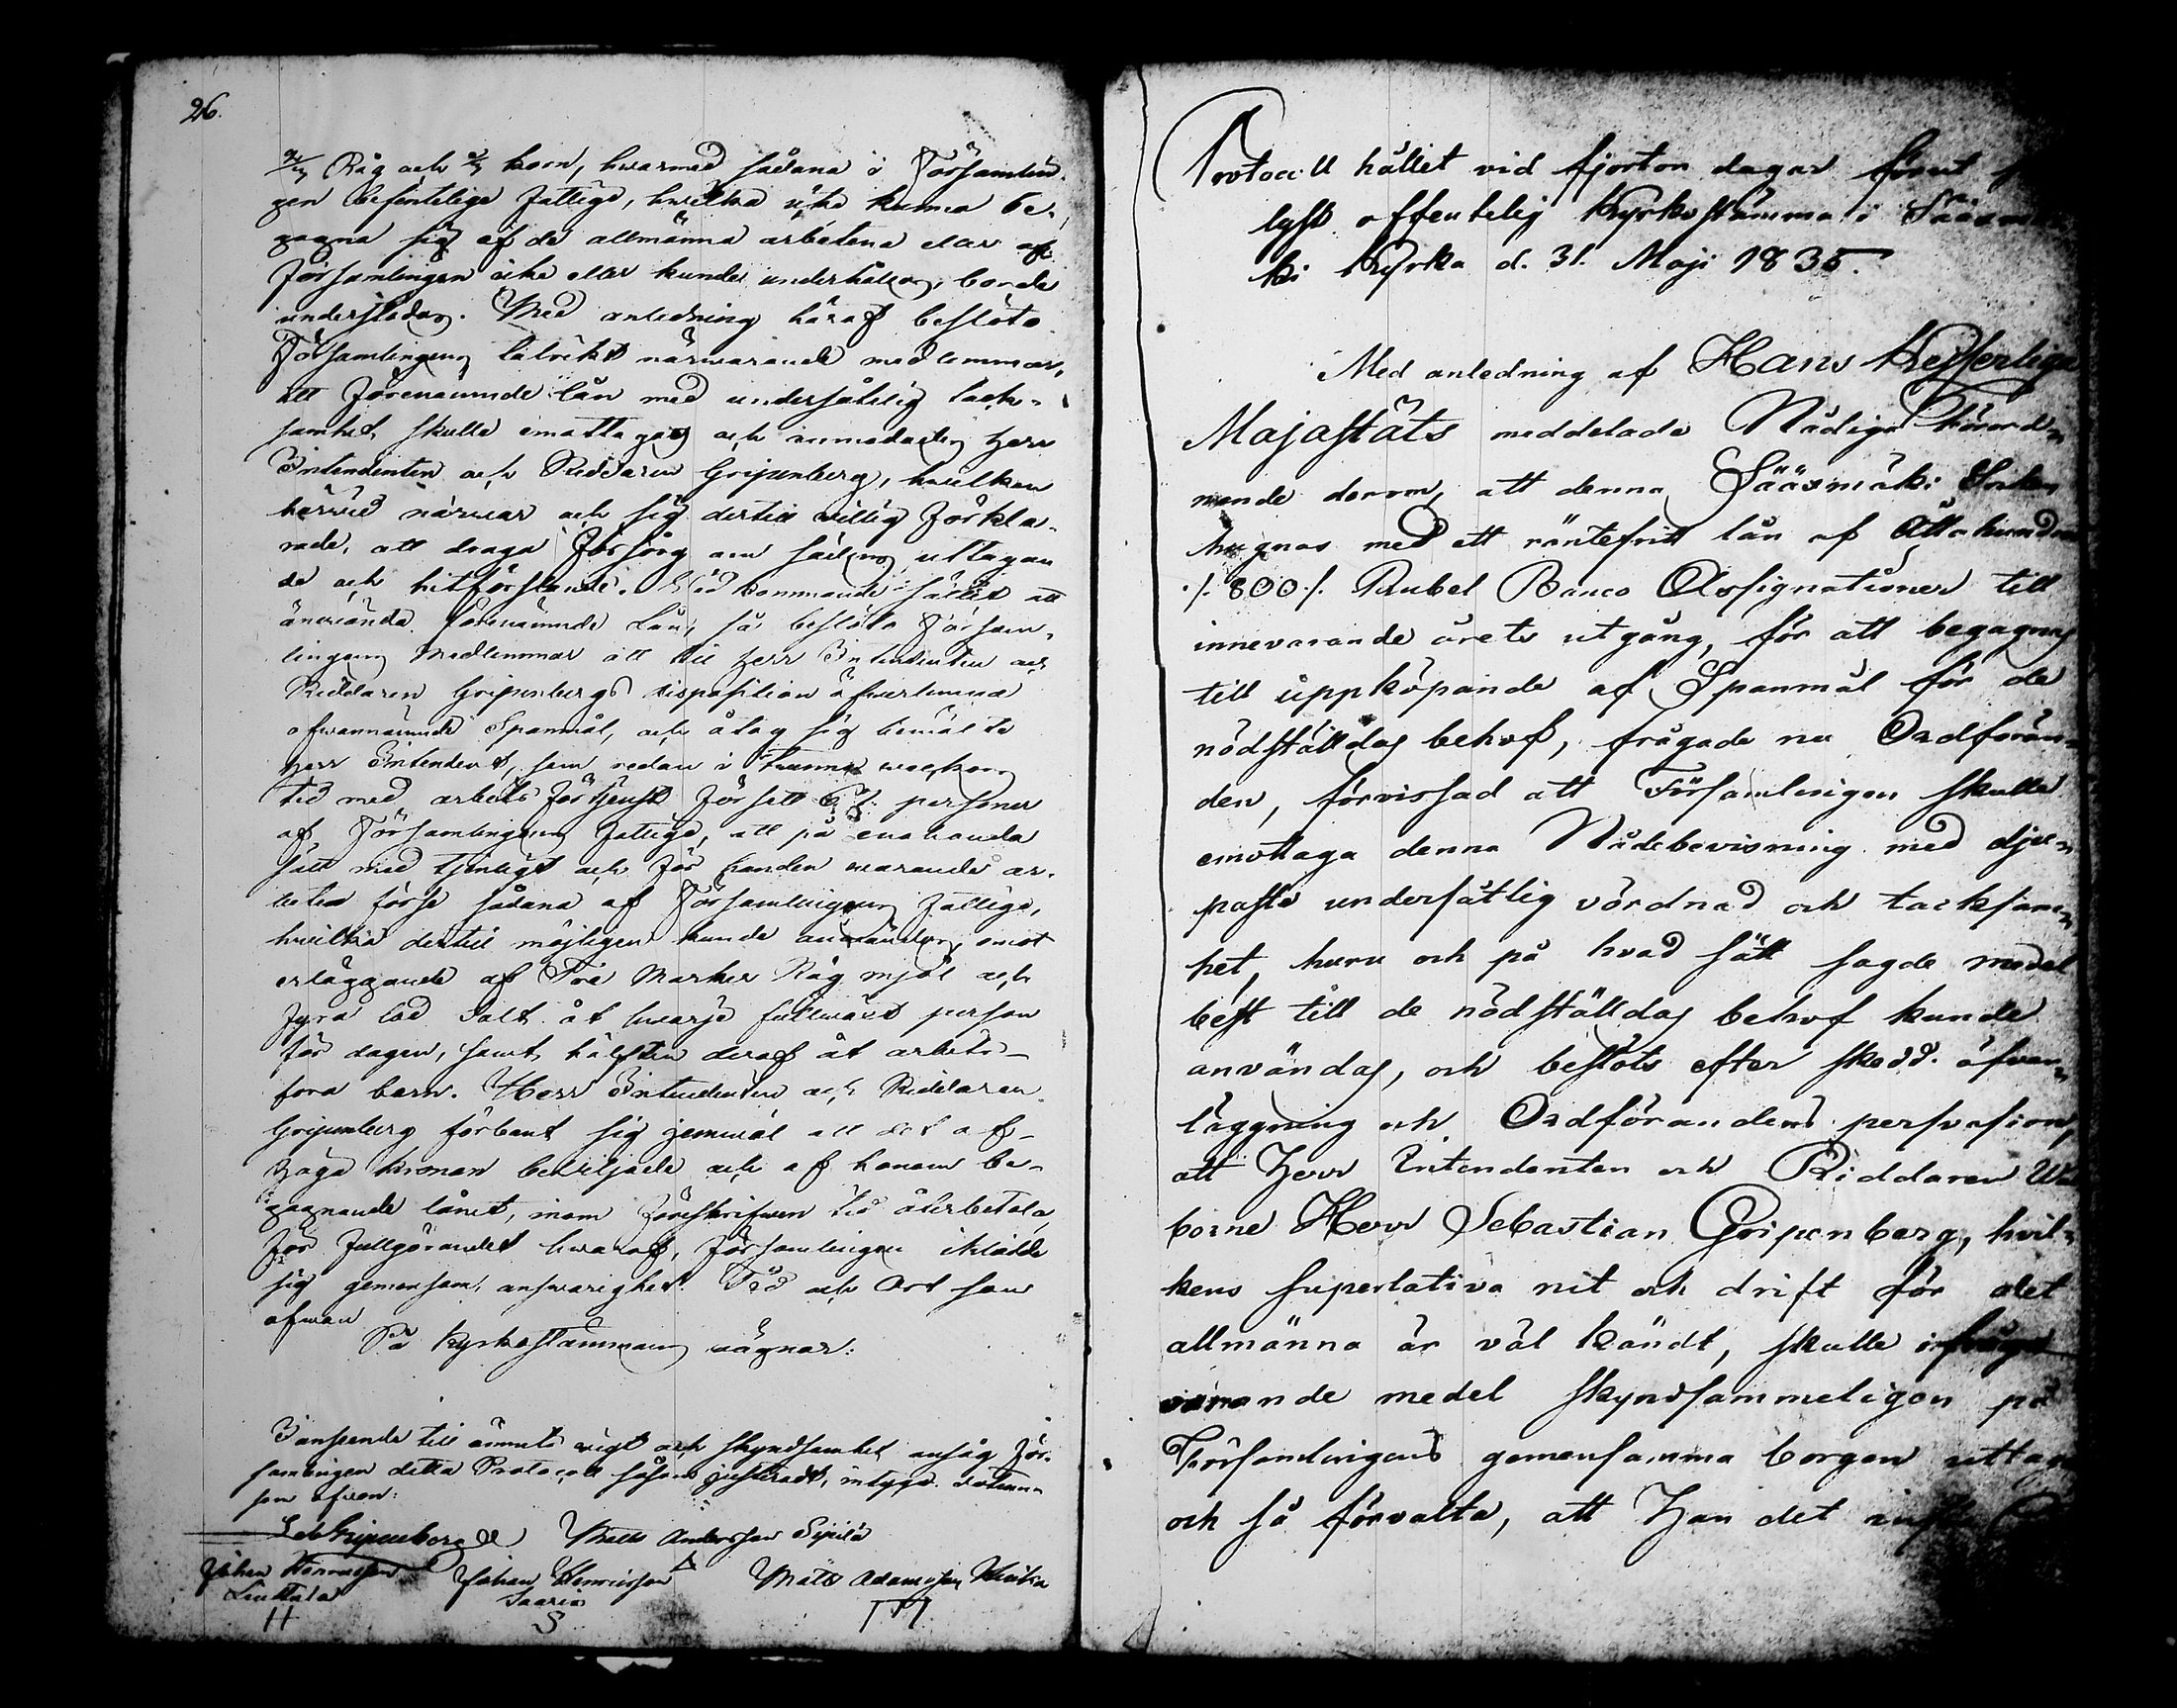 26.
Råg och korn, hwarmed sådana i Församlin-
gen befintelige fattige, hwilka icke kunna be-
gagna sig af de allmänna arbetena elar af
Församlingen icke eller kunde underhållas, borde
understödas. Med anledning häraf beslöto
Församlingens talrikt närwarande medlemmar,
att förenämnde lån med undersåtelig tack-
samhet skulle emottagas och anmodades Herr
Intendenten och Riddaren Gripenberg, hwilken
härwid närwar och sig dertill willig förkla-
rade, att draga försorg om dess uttagan
de och hitförslande. Wid kommande sättet att
använda förenämnde Lån, så beslöto Försam-
lingens Medlemmar att till Herr Intendenten och
Riddaren Gripenbergs disposition öfwerlemna
ofwannämnde Spanmål, och åtog sig bemälte
Herr Intendent, som redan i trenne weckors
tid med arbets förtjenst försett personer
af Församlingens fattige, att på enahanda
sätt med tjenligt och för handen warande ar-
beten förse sådana af Församlingens fattige,
hwilka dertill möjligen kunde användas, emot
erläggande af Tre Marker Råg mjöl och
fyra lod Salt åt hwarje fullwäxt person
för dagen, samt hälften deraf åt arbets-
fora barn. Herr Intendenten och Riddaren
Gripenberg förbant sig jemwäl att det af
höga Kronan beviljade och af honom be-
gagnande lånet, inom föreskrifwen tid återbetala,
för fullgörandet hwaraf, församlingen iklädde
sig gemensam answarighet. Tid och Ort som
ofwan
På Kyrkostämmans wägnar:
I anseende till ämnets wigt och skyndsamhet ansåg För-
samlingen detta Protocoll såsom justeradt, intyga. Datum
som ofwan:
Seb Gripenberg Matts Andersson Sipilä
Johan Henricsson Matts Adamsson
Liuttala Saario
H S
Protocoll hållet vid fjorton dagar förut
lyst offentelig Kyrkostämma i Sääxmä
ki Kyrka d. 31. Maji 1835.
Med anledning af Hans Kejserliga
Majestäts meddelade Nådiga förord-
nande derom, att denna Sääxmäki Soken
hugnas med ett räntefritt lån af Åttahundra
./. 800 ./. Rubel Banco Assignationer till
innevarande årets utgång, för att begagnas
till uppköpande af Spanmål för de
nödställdas behof, frågade nu Ordföran-
den, förvissad att Församlingen skulle
emottaga denna Nådebevisning med dju-
paste undersåtlig vördnad och tacksam-
het, huru och på hvad sätt sagde medel
bäst till de nödställdas behof kunde
användas, och beslöts efter skedd öfver-
läggning och Ordförandens persvasion,
att Herr Intendenten och Riddaren Wäl
borne Herr Sebastian Gripenberg, hvil-
kens superlativa nit och drift för det
allmänna är väl kändt, skulle ifråga
varande medel skyndsammeligen på
Församlingens gemensamma borgen uttaga
och så förvalta, att Han det